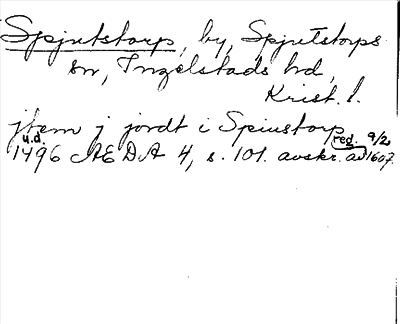 Spjutstorp, by, Spjutstorps
sn, Ingelstads hd,
Krist. l.
jtem j jordt i Spiustorp
u.d. red. 9/2
1496 AEDA 4, s. 101. avskr. av 1607.